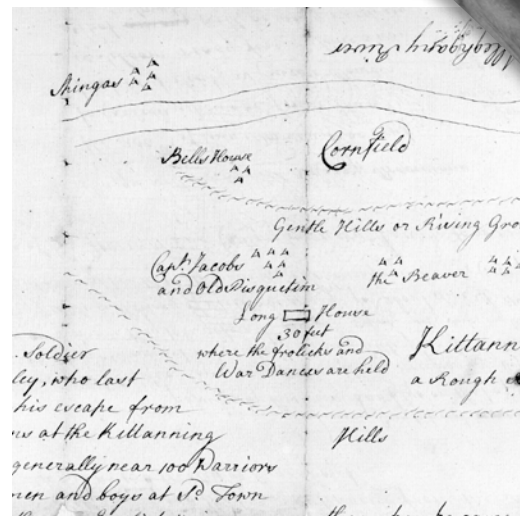 Allegheny River
Shingas
Bells House
Cornfield
Gentle Hills or Rising Gro
Capt. Jacobs
and Old Pisquetim
the Beaver
Long House
30 feet
where the frolicks and
War Dances are held
Kittann
a Rough
Hills
. Soldier
ley, who last
his escape from
ns at the Kittanning
generally near 100 Warriors
men and boys at Sd. Town